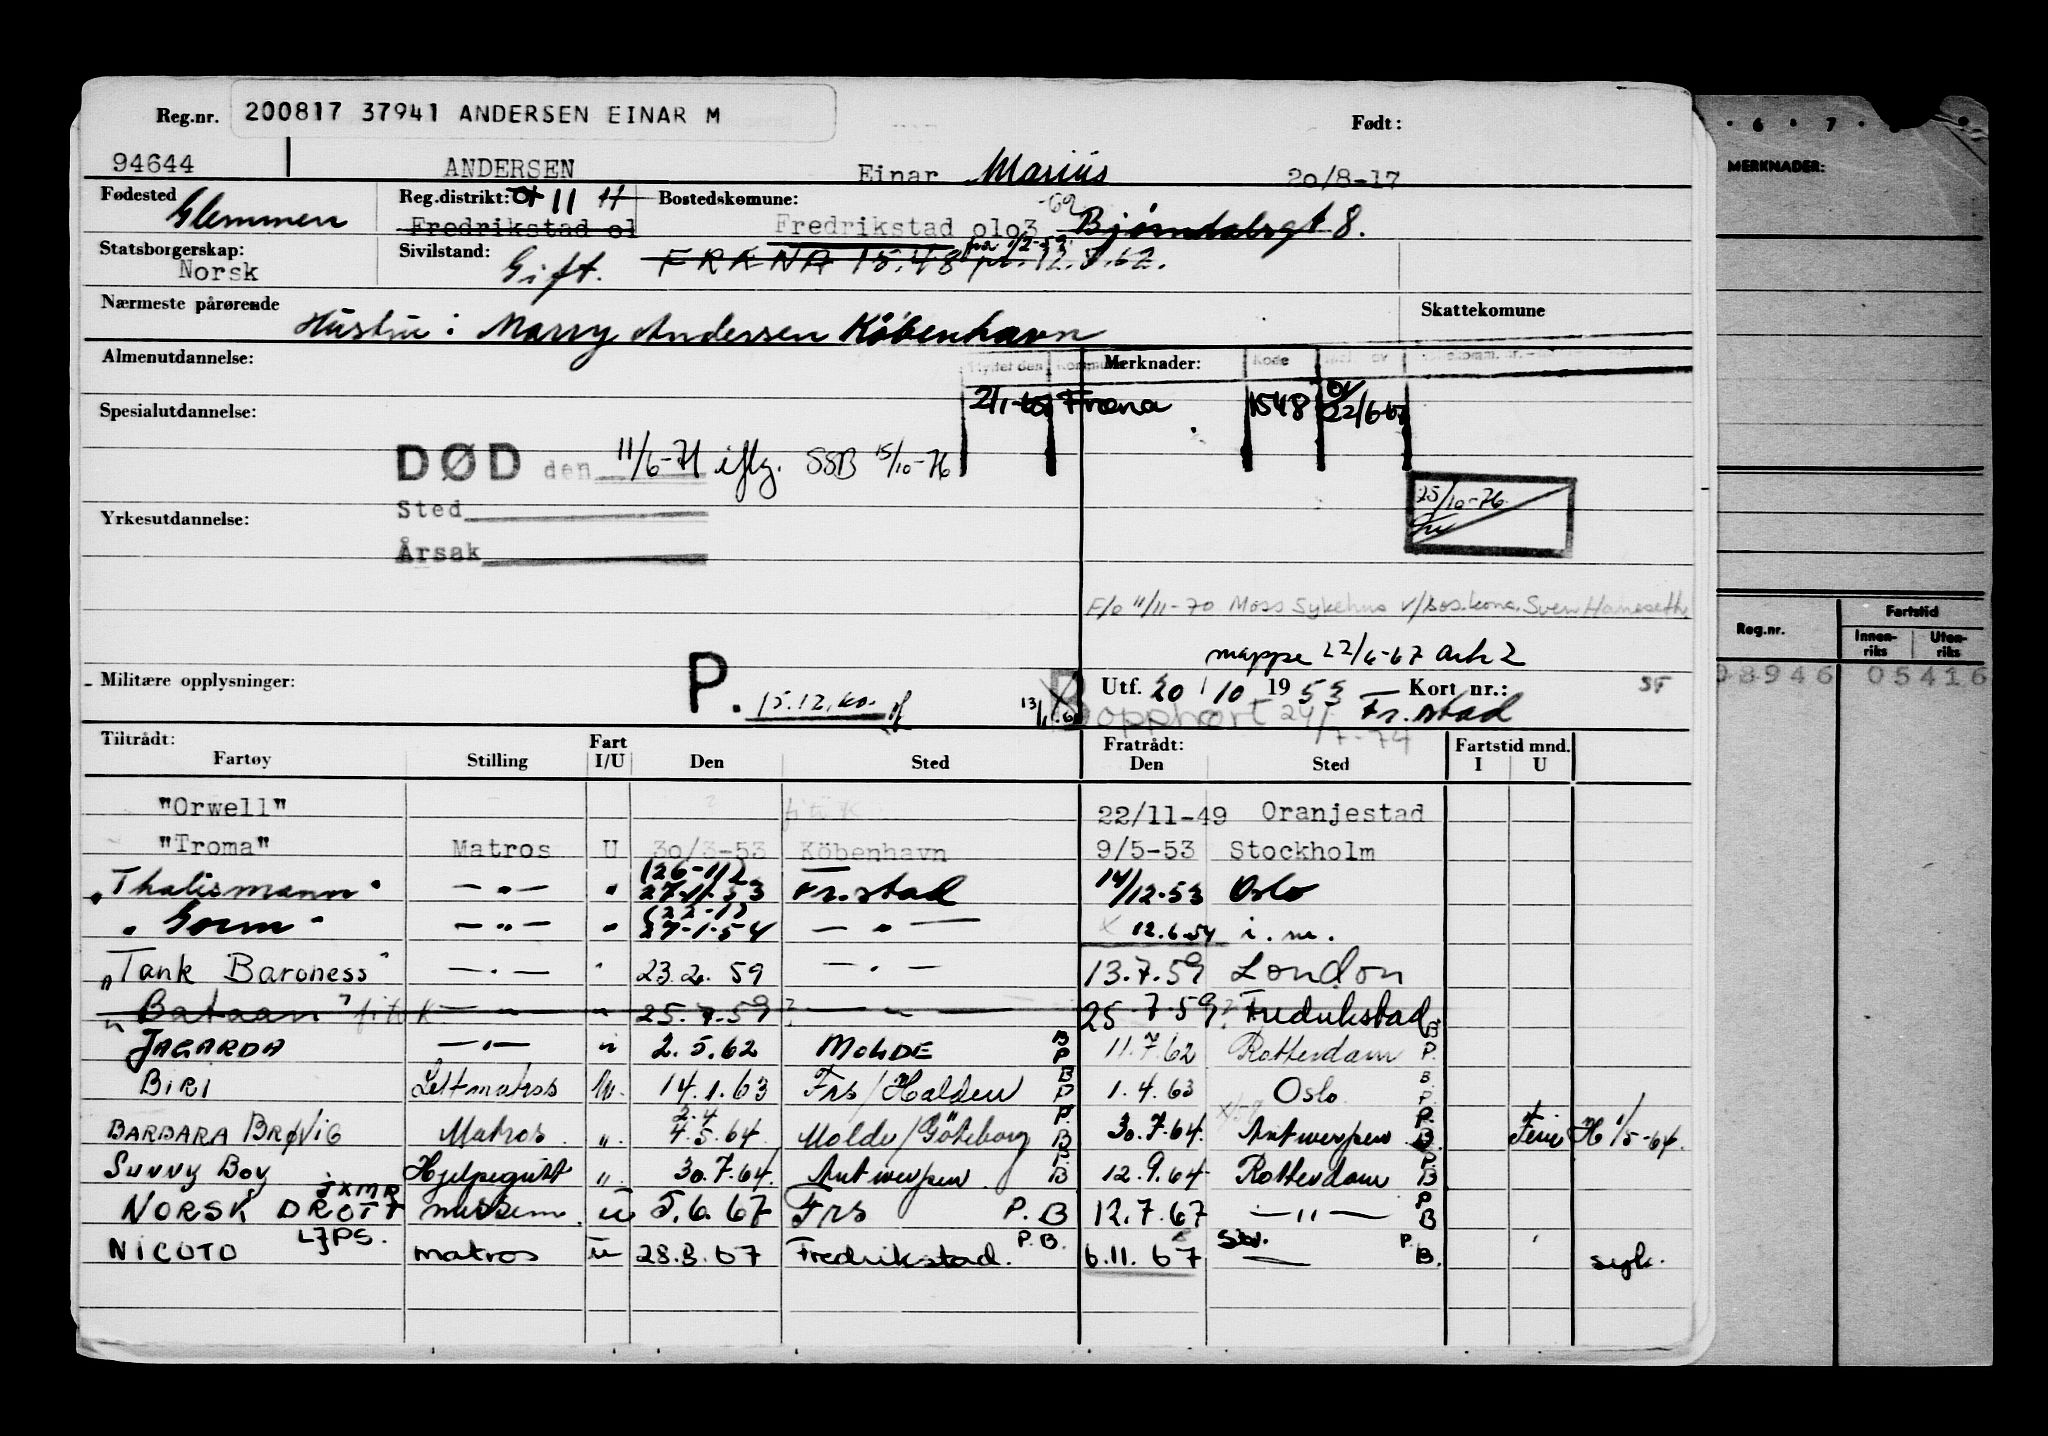 Reg.nr. 200817 37941 ANDERSEN EINAR M Født:
94644 ANDERSEN Einar Marius 20/8-17
Fødested Glemmen Reg.distrikt: 01 11 H Fredrikstad 01 Bostedskomune: Fredrikstad 0103 -69 Bjørndalsgt 8.
Statsborgerskap: Norsk Sivilstand: Gift. FRÆNA 15.48 fra 1/2-59 pr. 12.7.62.
Nærmeste pårørende Hustru: Marry Andersen København Skattekomune
Almenutdannelse: Flyttet den Kommune Merknader: Kode
Spesialutdannelse: 2/1-65 Fræna 1548 22/6-67
DØD den 11/6-71 iflg. SSB 15/10-76
Sted 25/10-76
Yrkesutdannelse:
Årsak
F/o 11/11-70 Moss Sykehus v/sos.kons. Sven Haneseth
mappe 22/6-67 ark 2
Militære opplysninger: P. 15.12.60. B Utf. 20/10 1953 Kort nr.: SF
opphørt 24/7-74 Fr.stad
Tiltrådt: Fart Fratrådt: Fartstid mnd.
Fartøy Stilling I/U Den Sted Den Sted I U
"Orwell" fitr K 22/11-49 Oranjestad
"Troma" Matros U 30/3-53 Köbenhavn 9/5-53 Stockholm
"Thalismann" — " — " (26-11) 27.11.53 Fr.stad 14/12-53 Oslo
"Gorm" — " — " (22-1) 27-1-54 — " — x 12.6.54 i.m.
"Tank Baroness" — " — " 23.2.59 — " — 13.7.59 London
"Bataan" ? fitr K — " — " 25.7.59 ? — " — 25.7.59 ? Fredrikstad
JAGARDA — " — " 2.5.62 MOLDE B P 11.7.62 Rotterdam B P.
BIRI Lettmatros 14.1.63 Frs/Halden B P 1.4.63 Oslo B. P.
BARBARA BRØVIG Matros " 2.4 4.5.64 Molde/Göteborg P. B 30.7.64. Antwerpen P. B. Ferie H 1/5-64.
SUNNY BOY Hjelpegutt " 30.7.64. Antwerpen B. B 12.9.64 Rotterdam P. B
NORSK DROTT JXMR messem. U 5.6.67 Frs P. B 12.7.67 — " — P B
NICOTO LJPS. matros U 28.8.67 Fredrikstad. P.B. 6.11.67 — P. B. syk.
6 7
MERKNADER:
Reg.nr. Fartstid
Innen-riks Uten-riks
08946 05416